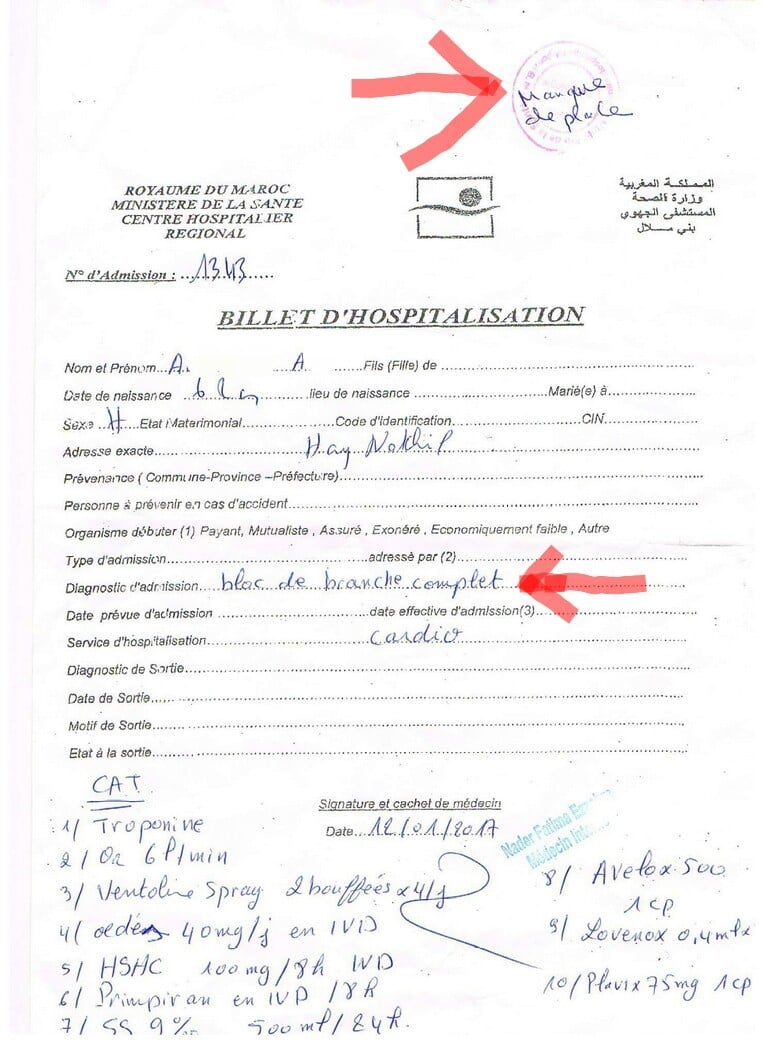 Manque
de place
ROYAUME DU MAROC
MINISTERE DE LA SANTE
CENTRE HOSPITALIER
REGIONAL
المملكة المغربية
وزارة الصحة
المستشفى الجهوي
بني مـــلال
N° d'Admission : ...1343......
BILLET D'HOSPITALISATION
Nom et Prénom...A. A .......Fils (Fille) de ................
Date de naissance ..........lieu de naissance ................Marié(e) à................
Sexe H....Etat Materimonial................Code d'identification................CIN................
Adresse exacte................Hay Nakhil................
Prévenance ( Commune-Province –Préfecture)................
Personne à prévenir en cas d'accident................
Organisme débuter (1) Payant, Mutualiste , Assuré , Exonéré , Economiquement faible , Autre
Type d'admission................adressé par (2)................
Diagnostic d'admission....bloc de branche complet
Date prévue d'admission ................date effective d'admission(3)................
Service d'hospitalisation................Cardio................
Diagnostic de Sortie................
Date de Sortie................
Motif de Sortie................
Etat à la sortie................
CAT
Signature et cachet de médecin
Date...12/01/2017
Nader Fatima
Médecin
1/ Troponine
2/ O2 6l/min
3/ Ventoline Spray 2 bouffées x 4/j
4/ 40mg/j en IVD
5/ HSHC 100mg/8h IVD
6/ Primpiran en IVD /8h
7/ SS 9‰ 500ml/24h.
8/ Avelox 500
1cp
9/ Lovenox 0,4ml
10/ Plavix 75mg 1cp